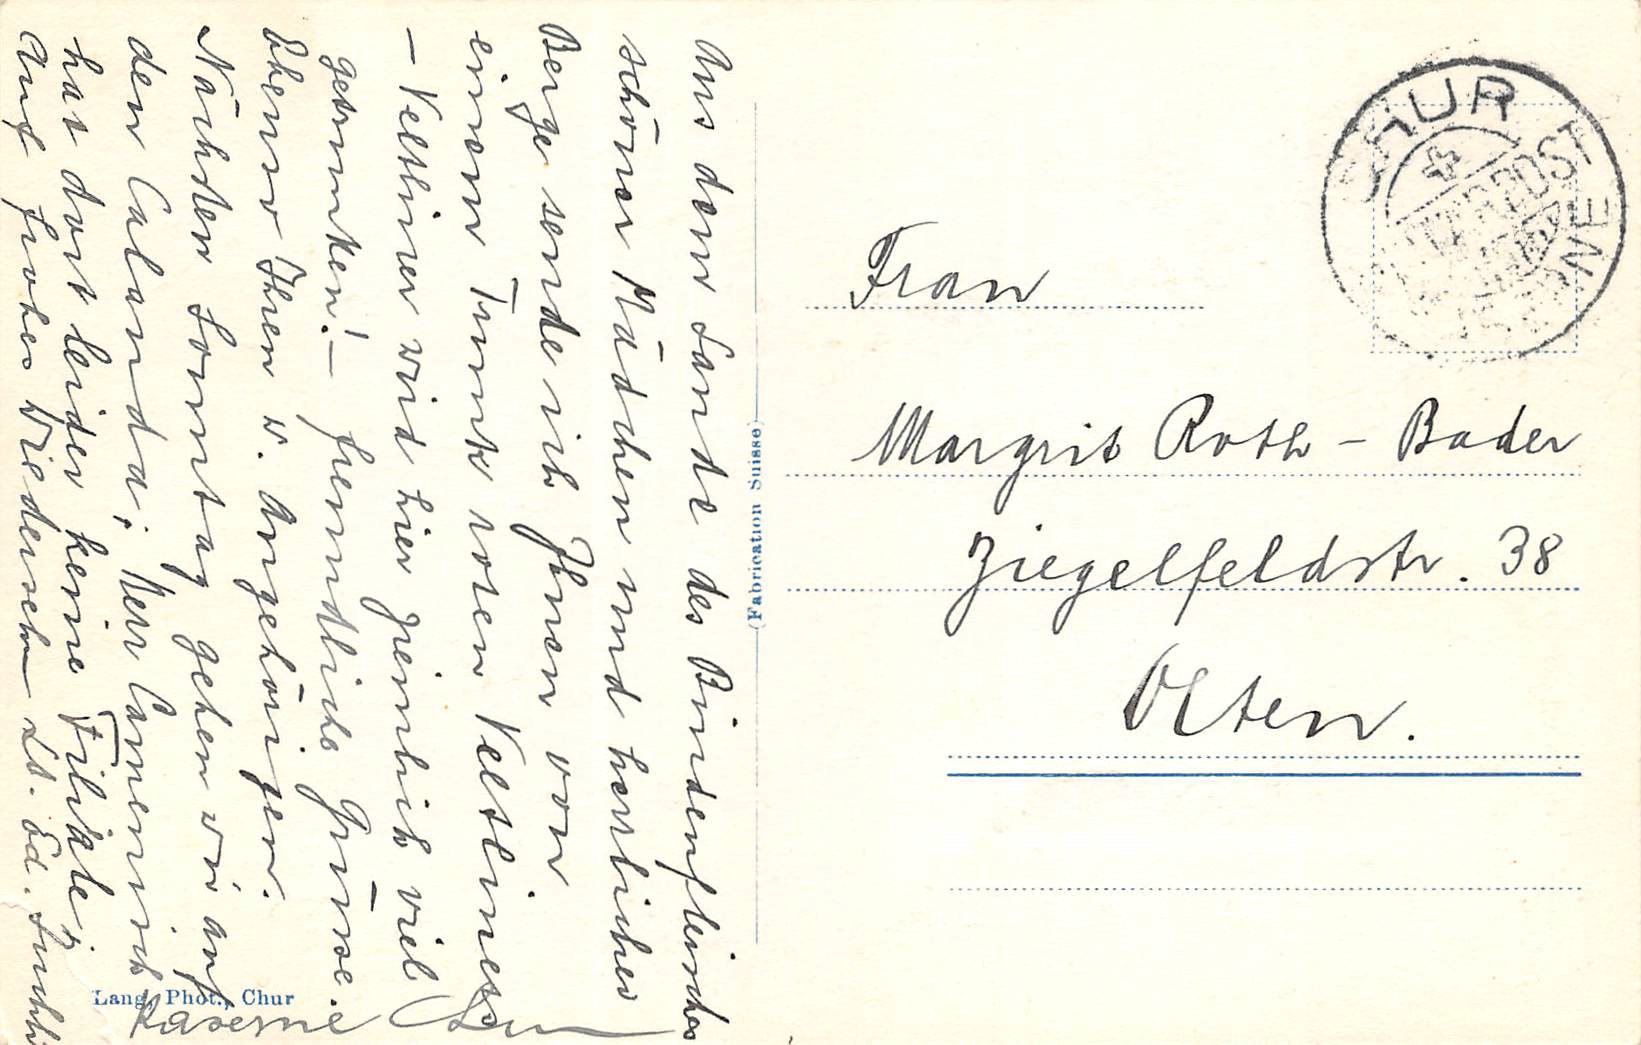 Aus dem Lande des Bündenfleisches
schöner Mädchen und herrlicher
Berge sende ich Ihnen von
einem Trunk roten Veltliners
– Veltliner wird hier ziemlich viel
getrunken! – freundliche Grüsse.
Ebenso Ihren w. Angehörigen.
Nächsten Sonntag gehen wir auf
den Calanda; Herr Camenisch
hat dort leider keine Filiale;
Auf frohes Wiedersehn Ed.
Kaserne Chur
Lang, Phot., Chur
(Fabrication Suisse)
CHUR
KASERNE
Frau
Margrit Roth – Bader
Ziegelfeldstr. 38
Olten.